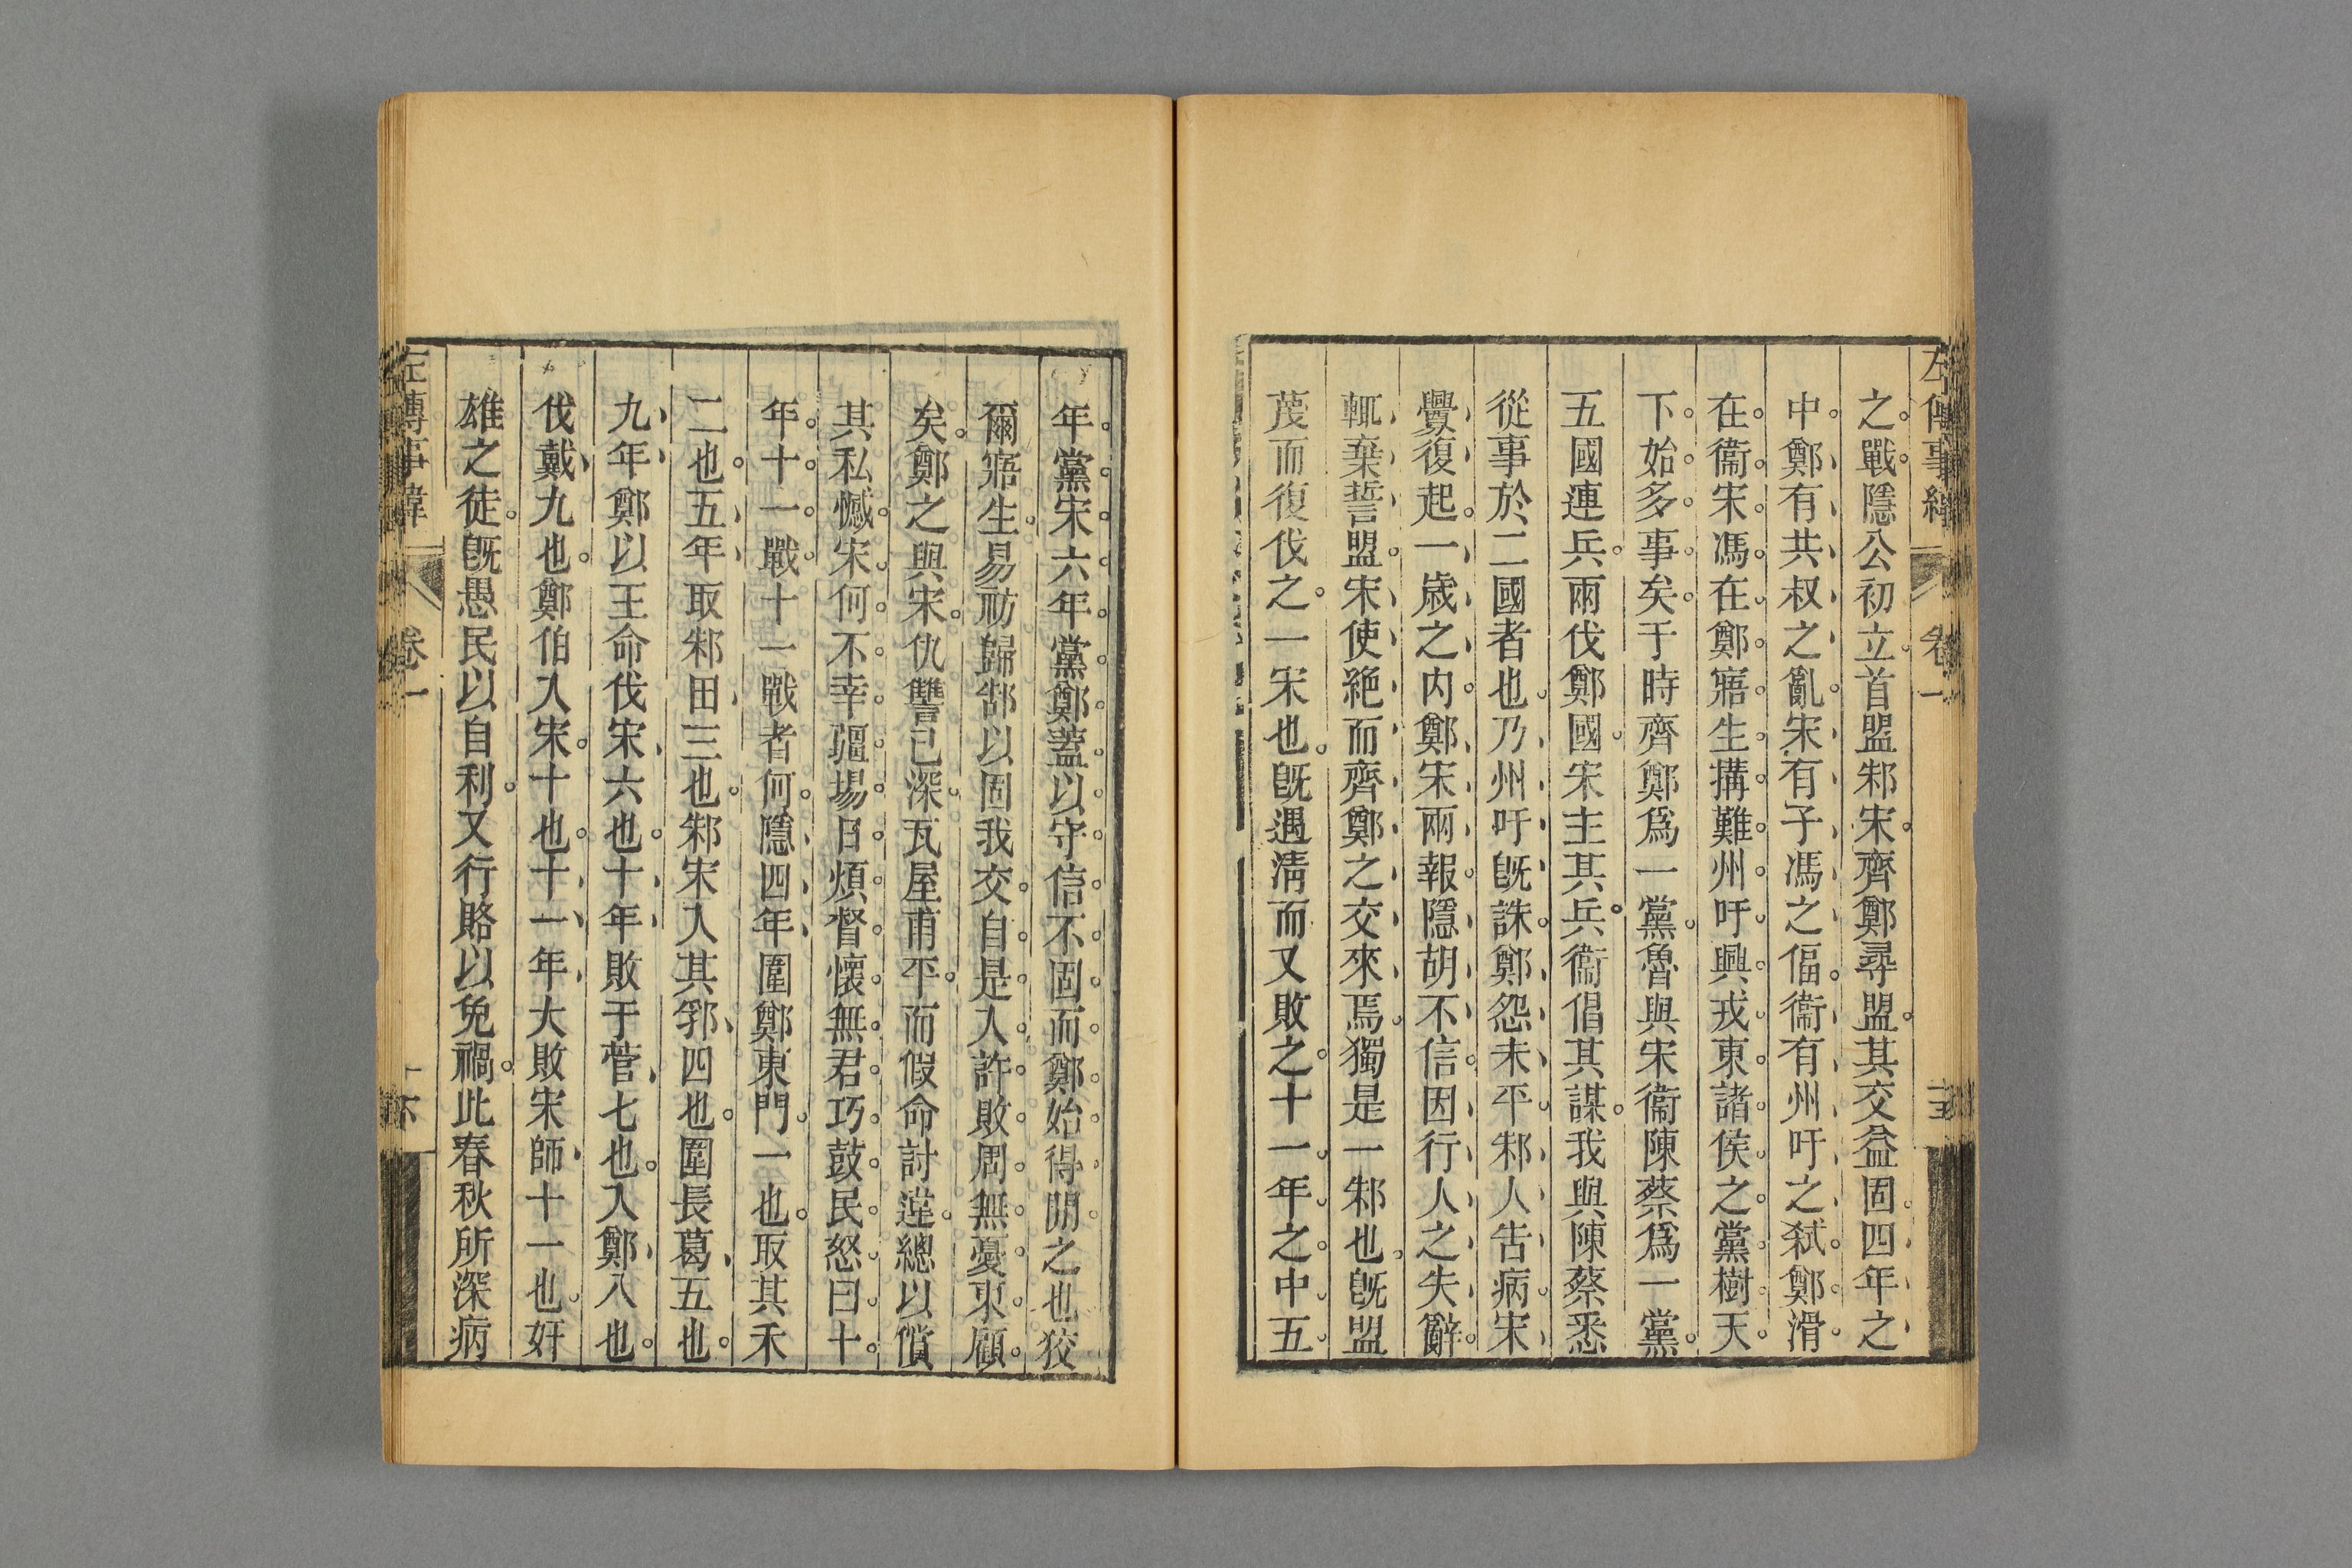 左傳事緯 卷一
之戰隱公初立首盟邾宋齊鄭尋盟其交益固四年之
中鄭有共叔之亂宋有子馮之偪衞有州吁之弑鄭滑
在衞宋馮在鄭寤生搆難州吁興戎東諸侯之黨樹天
下始多事矣于時齊鄭爲一黨魯與宋衞陳蔡爲一黨
五國連兵兩伐鄭國宋主其兵衞倡其謀我與陳蔡悉
從事於二國者也乃州吁旣誅鄭怨未平邾人告病宋
釁復起一歲之內鄭宋兩報隱胡不信因行人之失辭
輒棄誓盟宋使絕而齊鄭之交來焉獨是一邾也旣盟
蔑而復伐之一宋也旣遇淸而又敗之十一年之中五
年黨宋六年黨鄭蓋以守信不固而鄭始得閒之也狡
爾寤生易祊歸郜以固我交自是入許敗周無憂東顧
矣鄭之與宋仇讐已深瓦屋甫平而假命討違總以償
其私憾宋何不幸疆場日煩督懷無君巧鼓民怒曰十
年十一戰十一戰者何隱四年圍鄭東門一也取其禾
二也五年取邾田三也邾宋入其郛四也圍長葛五也
九年鄭以王命伐宋六也十年敗于菅七也入鄭八也
伐戴九也鄭伯入宋十也十一年大敗宋師十一也奸
雄之徒旣愚民以自利又行賂以免禍此春秋所深病
左傳事緯 卷一